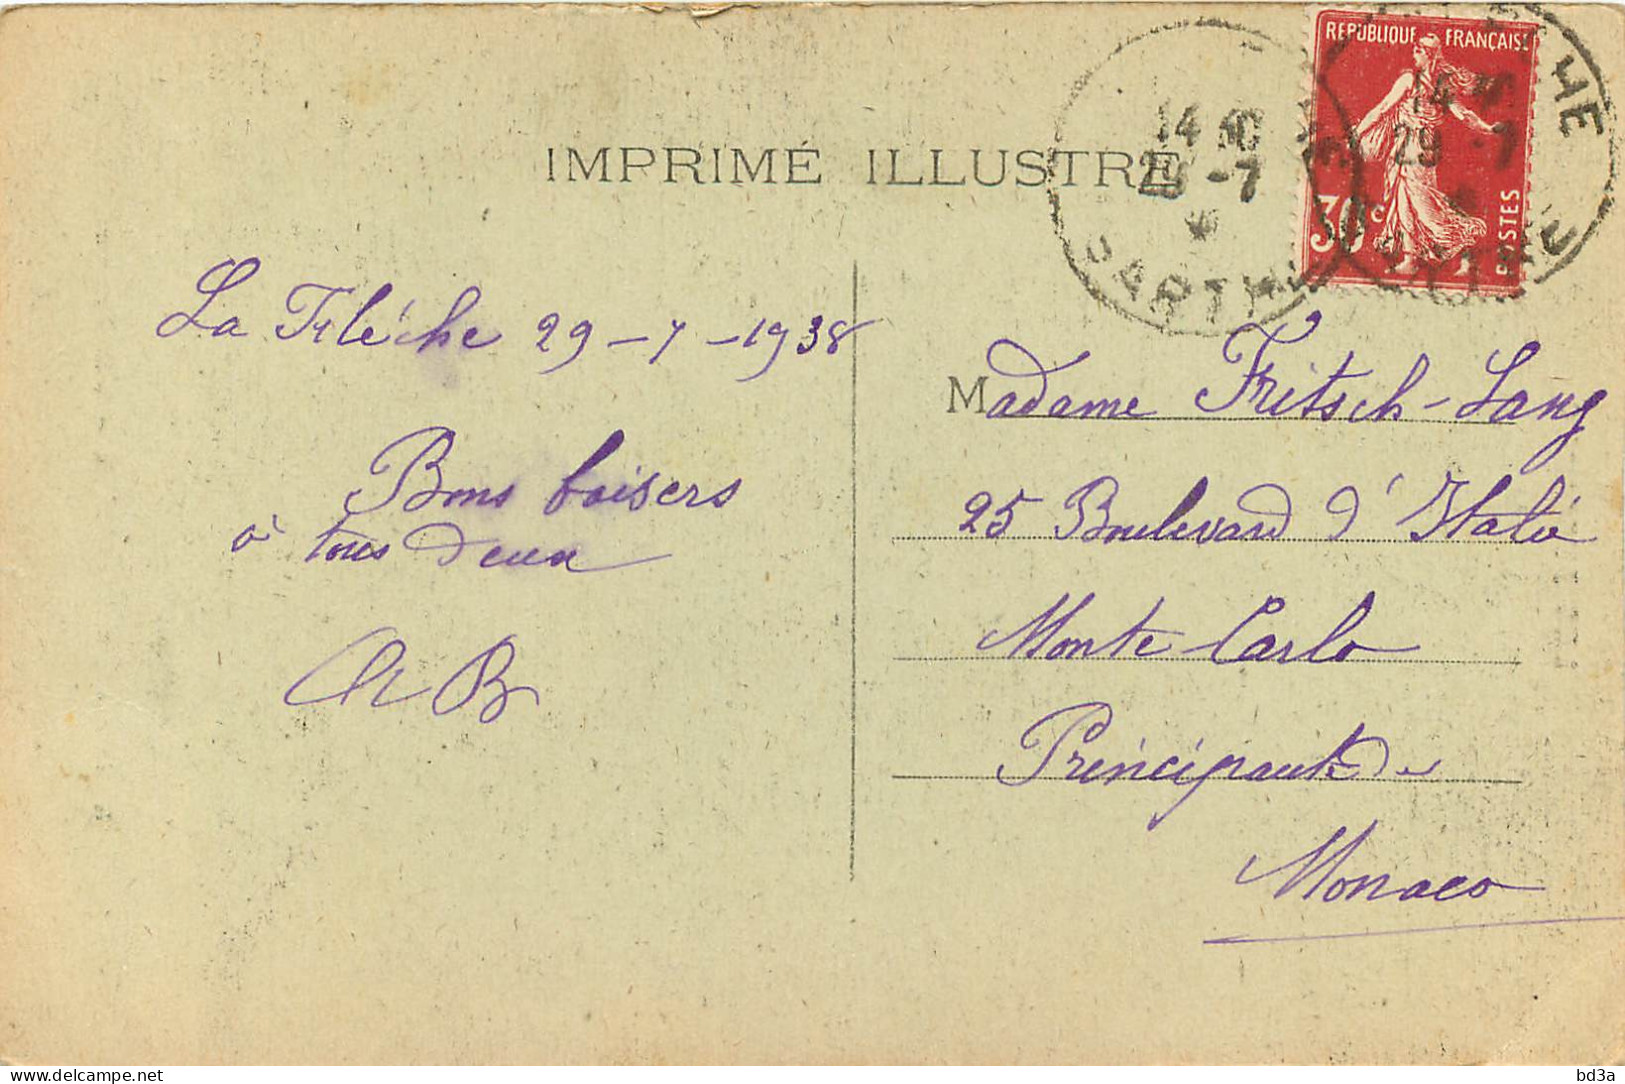 IMPRIMÉ ILLUSTRÉ
REPUBLIQUE FRANÇAISE
30c
POSTES
14
29 -7
SARTHE
14
29 -7
La Fléche 29-7-1938
Bons baisers
à tous deux
Madame Fritsch-Lang
25 Boulevard d'Italie
Monte Carlo
Principauté
Monaco
delcampe.net
bd3a